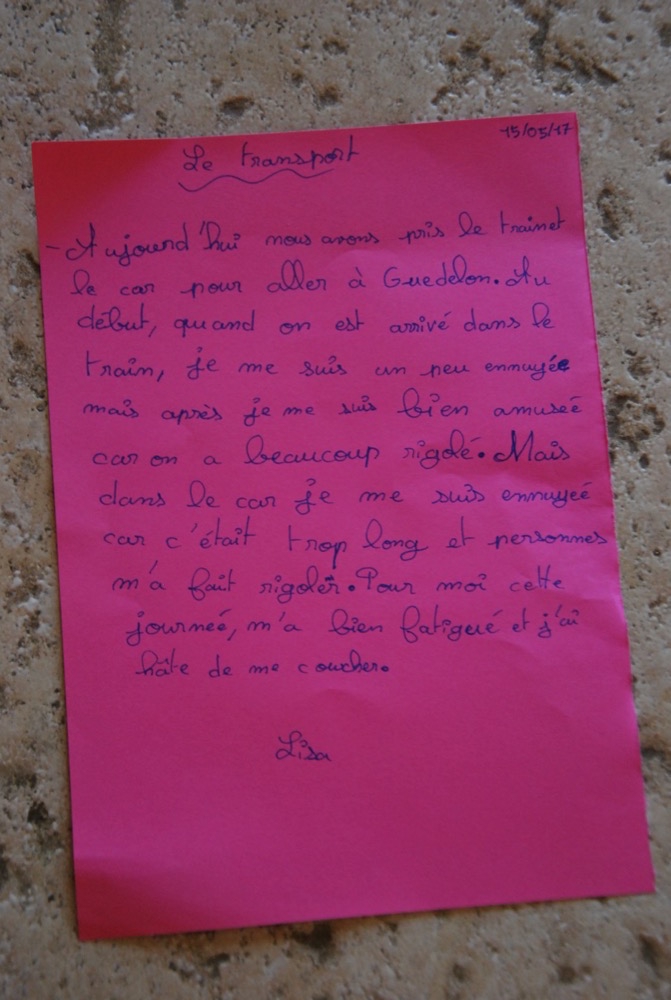 15/05/17
Le transport
- Aujourd'hui nous avons pris le train et
le car pour aller à Guedelon. Au
début, quand on est arrivé dans le
train, je me suis un peu ennuyée
mais après je me suis bien amuseé
car on a beaucoup rigolé. Mais
dans le car je me suis ennuyeé
car c'était trop long et personnes
m'a fait rigoler. Pour moi cette
journeé, m'a bien fatigué et j'ai
hâte de me coucher.
Lisa